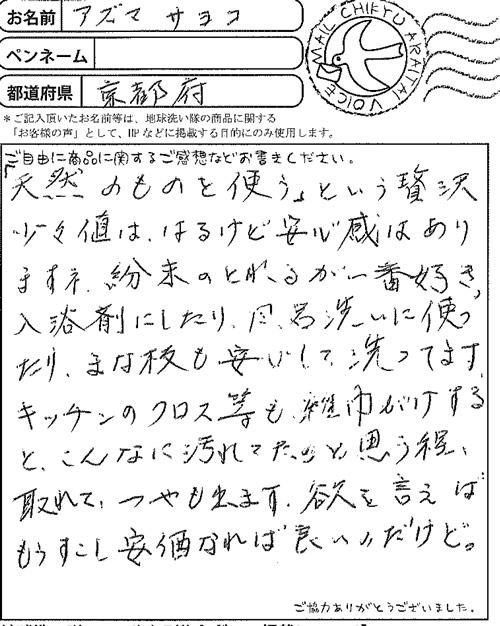 お名前 アズマ サヨコ
MAIL CHIKYU ARAITAI VOICE
ペンネーム
都道府県 京都府
＊ご記入頂いたお名前等は、地球洗い隊の商品に関する
「お客様の声」として、HPなどに掲載する目的にのみ使用します。
ご自由に商品に関するご感想などお書きください。
「天然のものを使う」という贅沢
少々値は、はるけど安心感はあり
ますネ、粉末のとれるが一番好き、
入浴剤にしたり、食器洗いに使っ
たり、まな板も安心して、洗ってます
キッチンのクロス等も、雑巾がけする
と、こんなに汚れてたのと思う程、
取れて、つやも出ます、欲を言えば
もうすこし安価なれば良い〃だけど。
ご協力ありがとうございました。